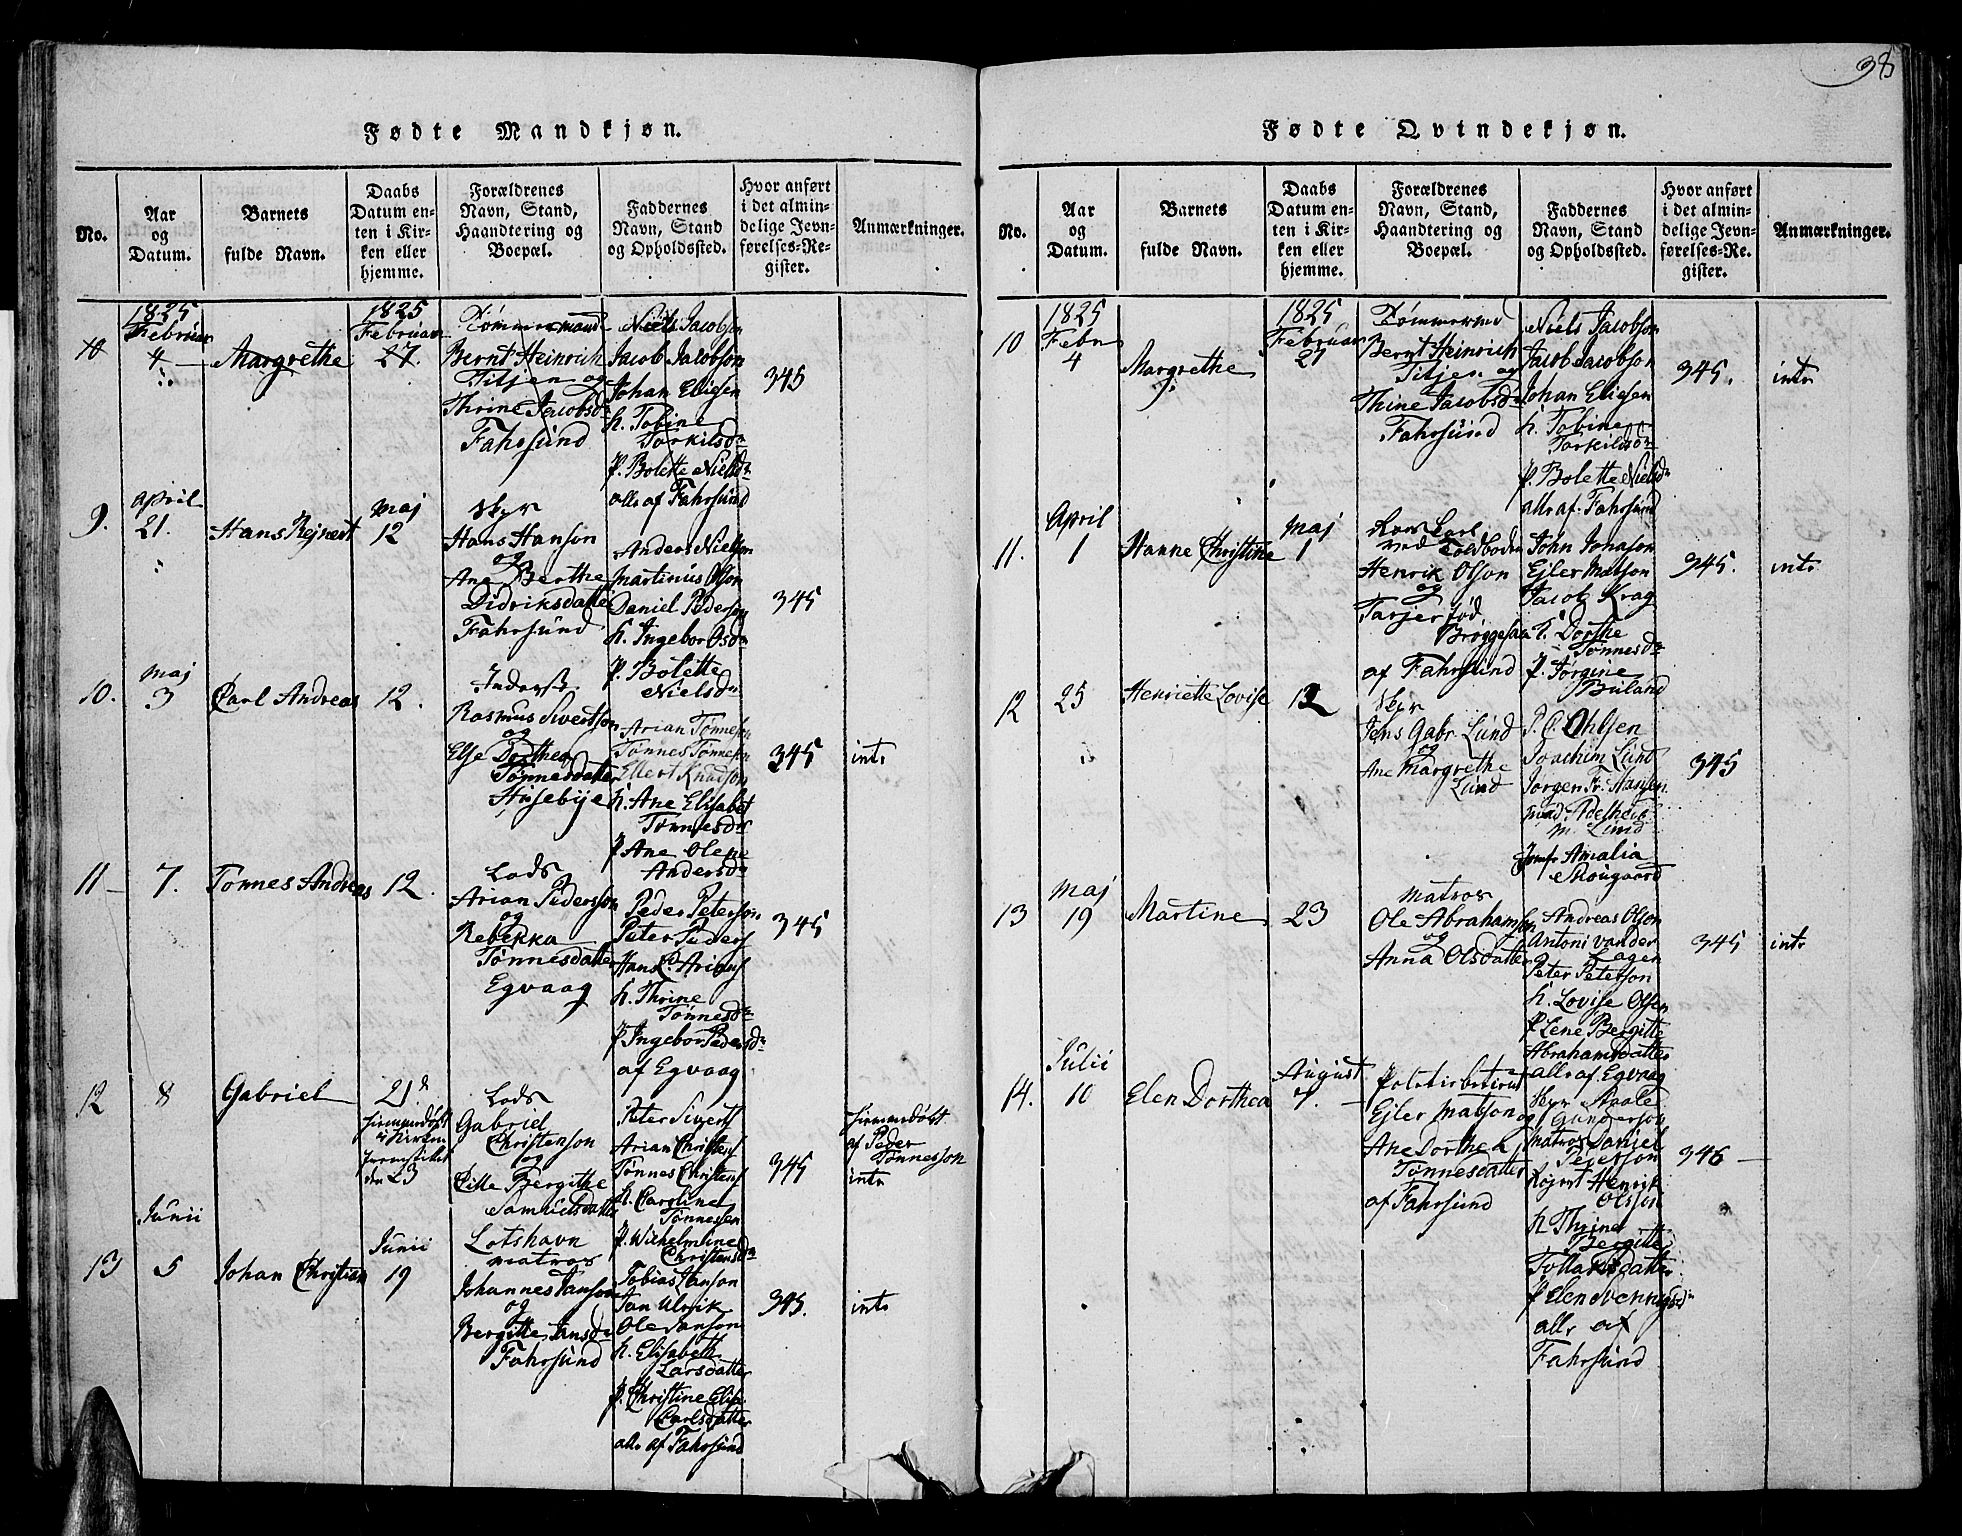 38
Fødte Mandkjøn.
No.
Aar
og
Datum.
Barnets
fulde Navn.
Daabs
Datum en-
ten i Kir-
ken eller
hjemme.
Forældrenes
Navn, Stand,
Haandtering og
Boepæl.
Faddernes
Navn, Stand
og Opholdssted.
Hvor anført
i det almin-
delige Jevn-
førelses-Re-
gister.
Anmærkninger.
10
1825
Februar
4
Margrethe
1825
Februar
27.
Tömmermand
Bernt Heinrich
Titjen og
Thrine Jacobsdr
Fahrsund
Niels Jacobson
Jacob Jacobson
Johan Eliesen
h. Tobine
Torkilsdr
P. Bolette Nielsdr
alle af Fahrsund
345
9.
April
21.
Hans Rejnert
Maj
12
Hans Hanson
og
Ane Berthe
Didriksdatter
Fahrsund
Anders Nielson
Martinus Olson
Daniel Pederson
h. Ingebor Osdr
P. Bolette
Nielsdr
345
10.
Maj
3
Carl Andreas
12.
Rasmus Sivertson
og
Else Dorthea
Tönnesdatter
Husebye
Arian Tönnesen
Tönnes Tönnesen
Ellert Knudson
h. Ane Elisabet
Tönnesdr
P Ane Olene
Andersdr
345
intr
11
7.
Tonnes Andreas
12.
Lods
Arian Pederson
og
Rebekka
Tönnesdatter
Egvaag
Peder Peterson
Peter Peders
Hans C. Arians
h. Thrine
Tönnesdr
P Ingebor Pedersdr
af Egvaag
345
12
8
Gabriel
21d
hjemmedöbt
i Kirken
fremstillet
den 23
Lods
Gabriel
Christenson
og
Cille Bergithe
Samuelsdatter
Lotshavn
Peter Siverts
Arian Christens
Tönnes Christens
h. Caroline
Tönnesen
P. Wilhelmine
Christensdr
345
hjemmedöbt
af Peder
Tönnesson
intr
13
Junii
5
Johan Christian
Junii
19
matros
Johannes Janson
og
Bergitte Jansdr
Fahrsund
Tobias Janson
Jan Ulrik
Ole Janson
h. Elisabeth
Larsdatter
P. Christine Elise
Carlsdatter
alle af Fahrsund
345.
intr
Fødte Qvindekjøn.
No.
Aar
og
Datum.
Barnets
fulde Navn.
Daabs
Datum en-
ten i Kir-
ken eller
hjemme.
Forældrenes
Navn, Stand,
Haandtering og
Boepæl.
Faddernes
Navn, Stand
og Opholdssted.
Hvor anført
i det almin-
delige Jevn-
førelses-Re-
gister.
Anmærkninger.
10
1825
Febr
4
Margrethe
1825
Februar
27
Tömmermd
Bernt Heinrich
Titjen og
Thine Jacobsdr
Fahrsund
Niels Jacobson
Jacob Jacobson
Johan Eliesen
h. Tobine
Torkildsdr
P. Bolette Nielsdr
alle af Fahrsund
345.
intr
11.
April
1
Hanne Christine
Maj
1
ved Toldboden
Henrik Olson
og
Tarjer
af Fahrsund
John Jonason
Ejler Matson
Jacob Krag
h. Dorthe
Tönnesdr
P. Jörgine
Buland
345.
intr
12
25
Henriette Lovise
12
Jens Gabr Lund
og
Ane Margrethe
Lund
P. C. Ohlsen
Joachim Lund
Jörgen Fr. Hansen
mad Adelheid
M. Lund
Jomfr Amalia
Skougaard
345
13
Maj
19
Martine
23
matros
Ole Abrahamson
og
Anna Olsdatter
Andreas Olson
Antoni vander
Lagen
Peter Peterson
h. Lovise Olsen
P Lene Bergitte
Abrahamsdatter
alle af Egvaag
345
intr
14.
Julii
10
Elen Dorthea
August
7.
Ejler Matson og
Ane Dorthea
Tönnesdatter
af Fahrsund
Gunderson
matros Daniel
Pederson
Rejert Henrik
Olsson
h Thrine
Bergitte
Tollaksdatter
P Elen
alle af
Fahrsund
346